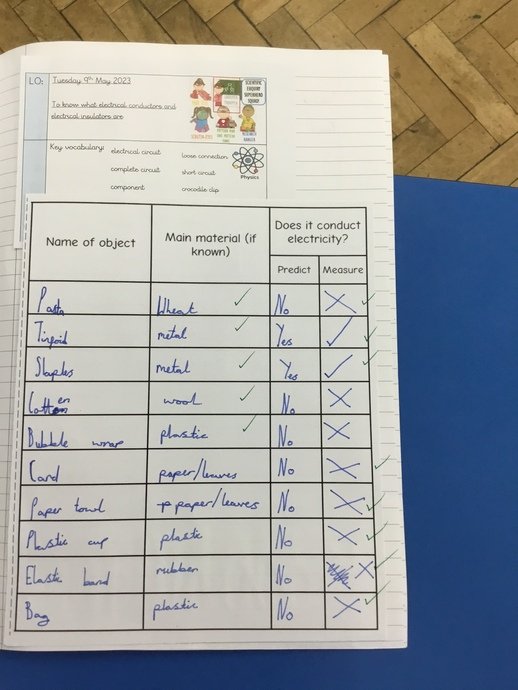 LO: Tuesday 9th May 2023
SCIENTIFIC ENQUIRY SUPERHERO SQUAD
To know what electrical conductors and
electrical insulators are
Key vocabulary: electrical circuit loose connection
complete circuit short circuit Physics
component crocodile clip
Name of object Main material (if known) Does it conduct electricity?
Predict Measure
Pasta Wheat ✓ No X ✓
Tinfoil metal ✓ Yes ✓ ✓
Staples metal ✓ Yes ✓ ✓
Cotten wool ✓ No X
Bubble wrap plastic ✓ No X
Card paper/leaves No X ✓
Paper towl paper/leaves No X ✓
Plastic cup plastic No X ✓
Elastic band rubber No X ✓
Bag plastic No X ✓